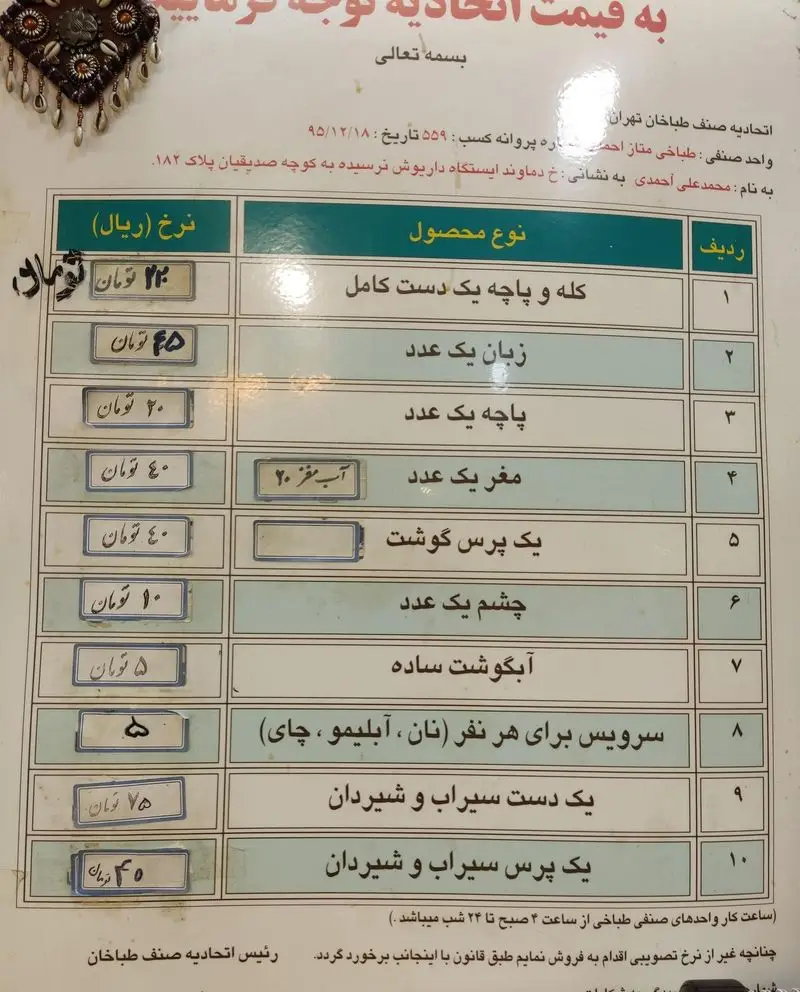 به قیمت اتحادیه توجه فرمایید
بسمه تعالی
اتحادیه صنف طباخان تهران
واحد صنفی : طباخی متاز احمدی شماره پروانه کسب : ۵۵۹ تاریخ : ۹۵/۱۲/۱۸
به نام : محمدعلی احمدی به نشانی : خ دماوند ایستگاه داریوش نرسیده به کوچه صدیقیان پلاک ۱۸۲.
ردیف نوع محصول نرخ (ریال)
تومان
۱ کله و پاچه یک دست کامل تومان
۲ زبان یک عدد ۴۵ تومان
۳ پاچه یک عدد ۲۰ تومان
۴ مغر یک عدد آب مغز ۲۰ ۴۰ تومان
۵ یک پرس گوشت ۴۰ تومان
۶ چشم یک عدد ۱۰ تومان
۷ آبگوشت ساده ۵ تومان
۸ سرویس برای هر نفر (نان ، آبلیمو ، چای) ۵
۹ یک دست سیراب و شیردان ۷۵ تومان
۱۰ یک پرس سیراب و شیردان ۴۰ تومان
(ساعت کار واحدهای صنفی طباخی از ساعت ۴ صبح تا ۲۴ شب میباشد .)
چنانچه غیر از نرخ تصویبی اقدام به فروش نمایم طبق قانون با اینجانب برخورد گردد. رئیس اتحادیه صنف طباخان